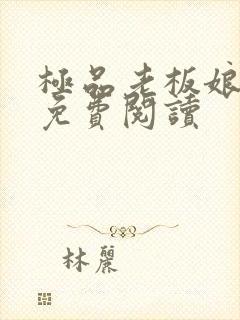 極品老板娘
免費閱讀
林麗